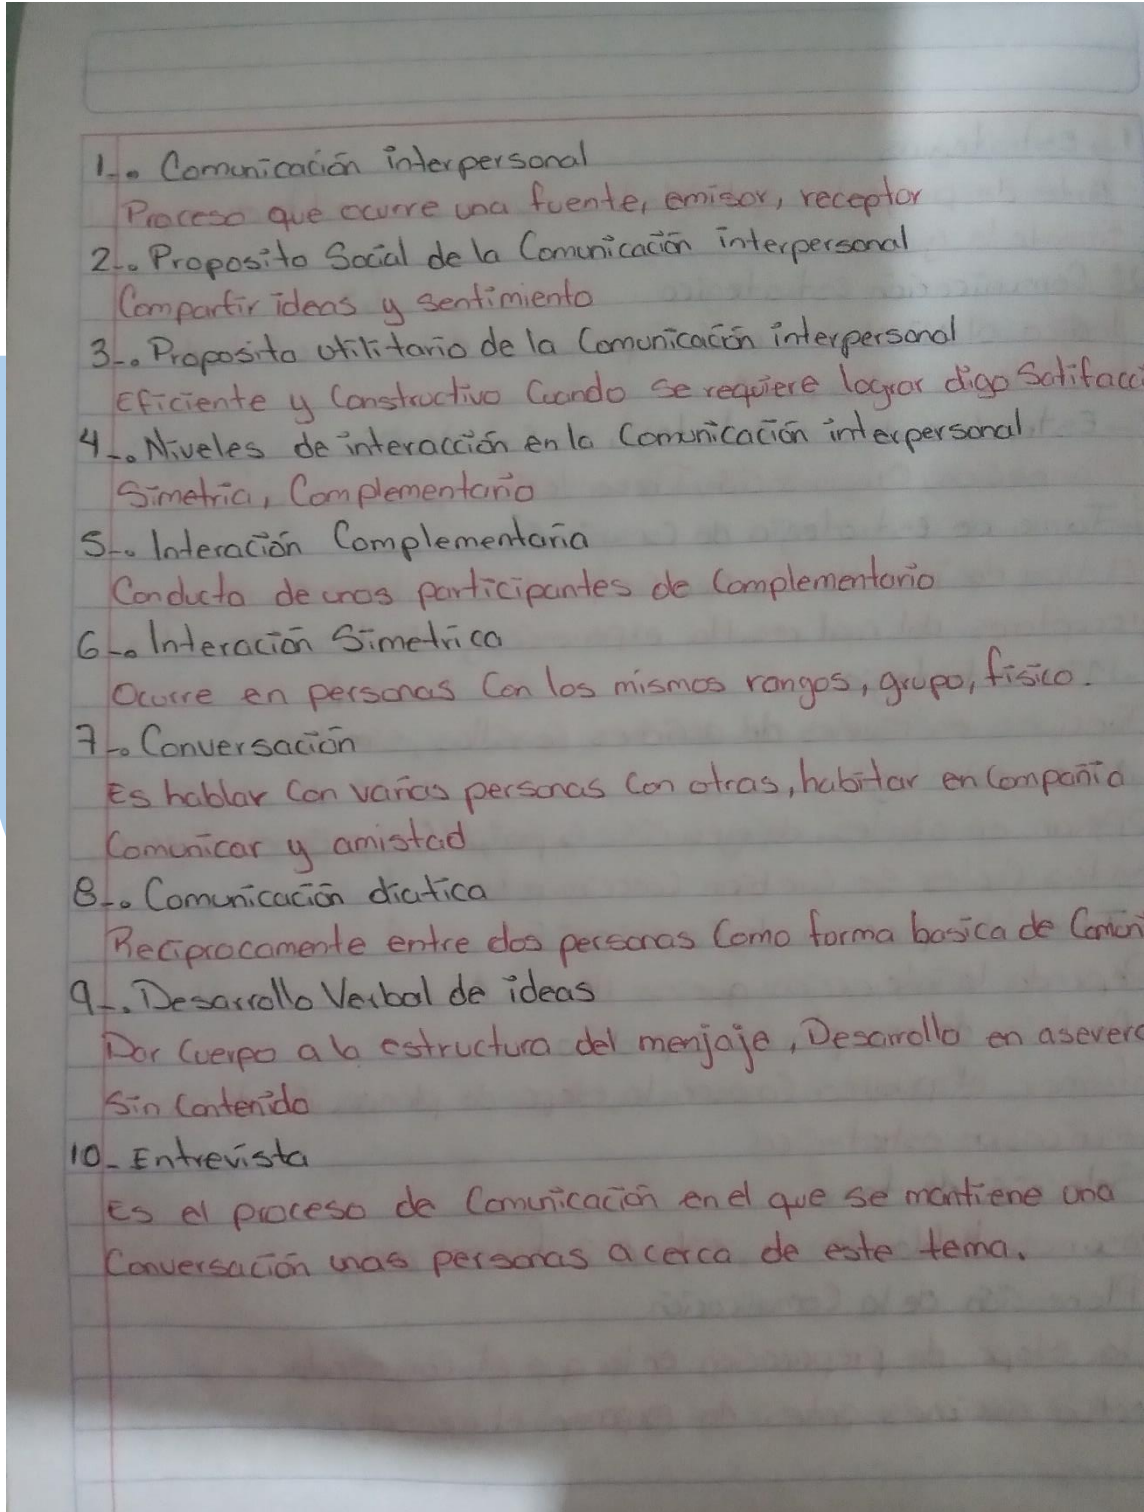 1.- Comunicación interpersonal
Proceso que ocurre una fuente, emisor, receptor
2.- Proposito Social de la Comunicación interpersonal
Compartir ideas y sentimiento
3.- Proposito utilitario de la Comunicación interpersonal
Eficiente y Constructivo Cuando se requiere lograr digo Satifacci
4.- Niveles de interacción en la Comunicación interpersonal
Simetria, Complementario
5.- Interación Complementaria
Conducta de unos participantes de Complementario
6.- Interación Simetrica
Ocurre en personas Con los mismos rangos, grupo, fisico.
7.- Conversación
Es hablar Con varias personas Con otras, habitar en Compañia
Comunicar y amistad
8.- Comunicación diatica
Reciprocamente entre dos personas Como forma basica de Comun
9.- Desarrollo Verbal de ideas
Dar Cuerpo a la estructura del menjaje, Desarrollo en asevera
Sin Contenido
10- Entrevista
Es el proceso de Comunicación en el que se mantiene una
Conversación unas personas acerca de este tema.